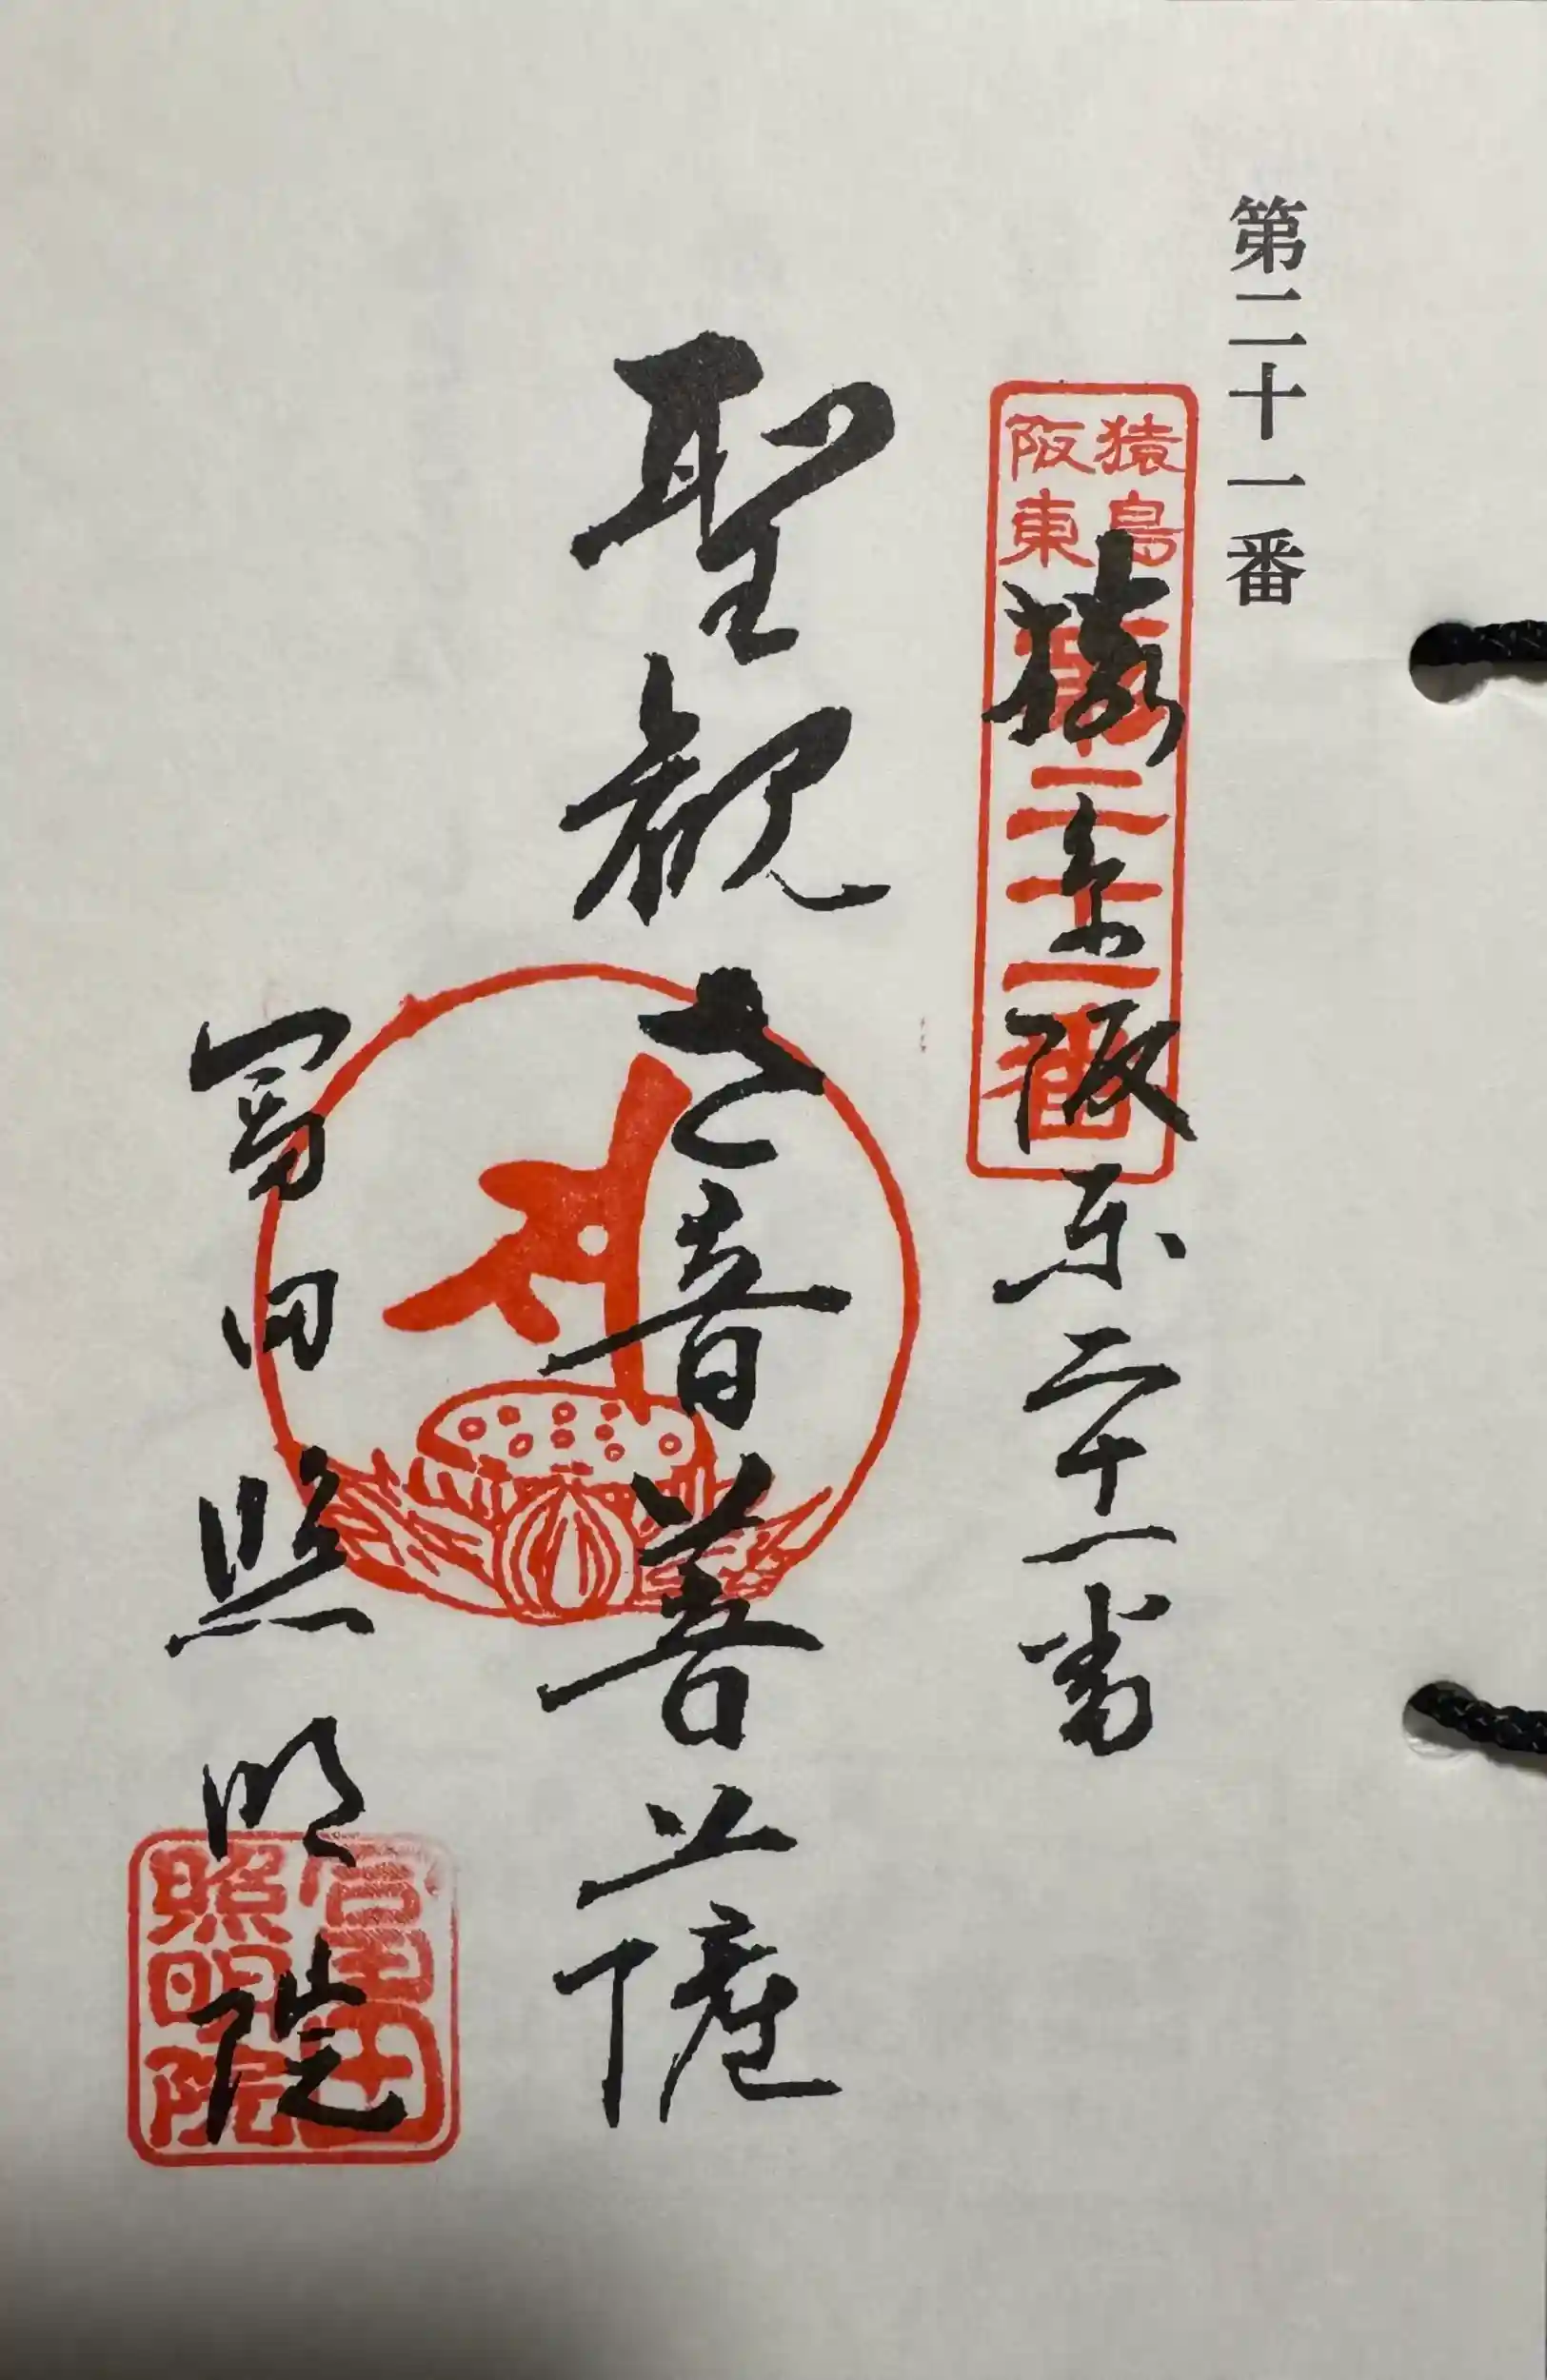 第二十一番
猿島
阪東
第二十一番
猿島阪東二十一番
聖観世音菩薩
冨田照明院
富田
照明院